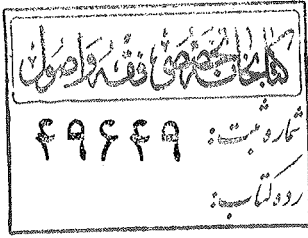 کتابخانه تخصصی فقه و اصول
شماره ثبت: ۴۹۶۴۹
رده کتاب: